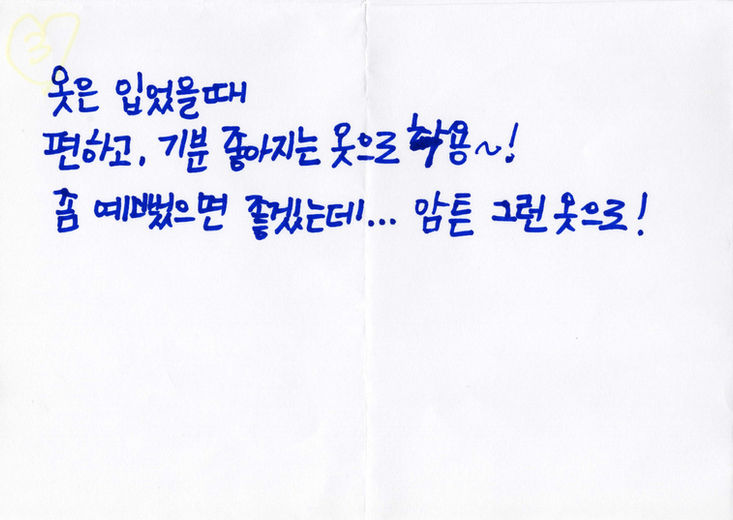 3
옷은 입었을때
편하고, 기분 좋아지는 옷으로 착용~!
좀 예뻤으면 좋겠는데... 암튼 그런 옷으로!